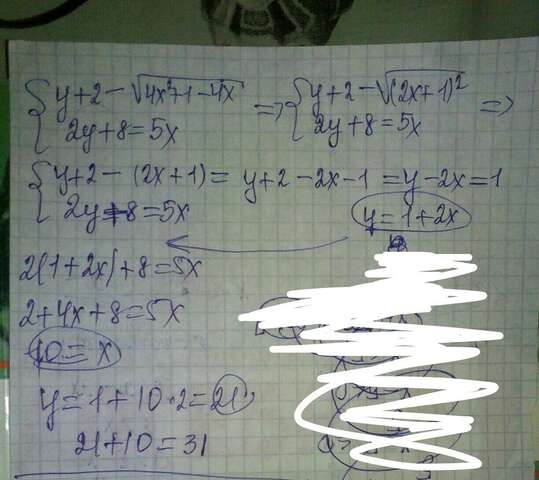 { y+2-√4x²+1-4x => { y+2-√(2x+1)² =>
2y+8=5x 2y+8=5x
{ y+2-(2x+1)= y+2-2x-1 =y-2x=1
2y+8=5x y=1+2x
2(1+2x)+8=5x
2+4x+8=5x
10=x
y=1+10·2=21
21+10=31